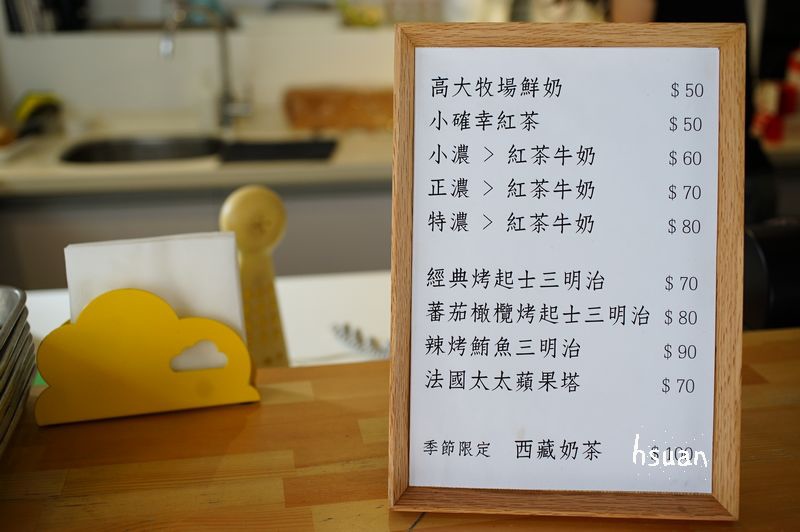 高大牧場鮮奶 $50
小確幸紅茶 $50
小濃 > 紅茶牛奶 $60
正濃 > 紅茶牛奶 $70
特濃 > 紅茶牛奶 $80
經典烤起士三明治 $70
蕃茄橄欖烤起士三明治 $80
辣烤鮪魚三明治 $90
法國太太蘋果塔 $70
季節限定 西藏奶茶 $100
hsuan